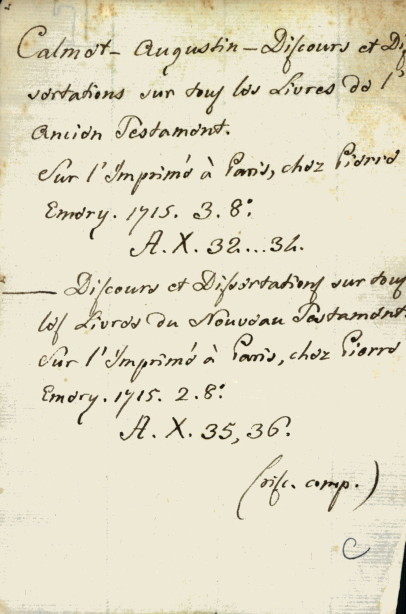 Calmet - Augustin - Discours et Dis
sertations sur tous les Livres de l'
Ancien Testament.
Sur l'Imprimé à Paris, chez Pierre
Emery. 1715. 3. 8º
A. X. 32...34.
— Discours et Dissertations sur tous
les Livres du Nouveau Testament.
Sur l'Imprimé à Paris, chez Pierre
Emery. 1715. 2. 8º
A. X. 35, 36.
comp.)
C